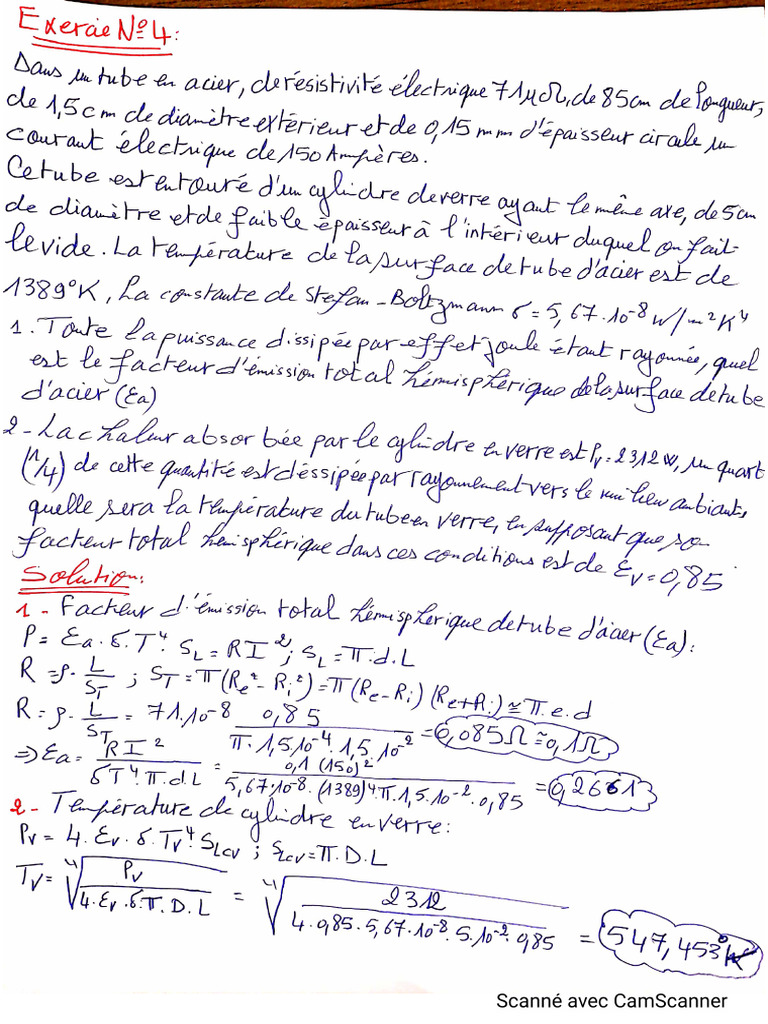 Exercie N°4:
Dans un tube en acier, de résistivité électrique 71μΩ, de 85cm de longueur,
de 1,5cm de diamètre extérieur et de 0,15mm d'épaisseur circule un
courant électrique de 150 Ampères.
Ce tube est entouré d'un cylindre de verre ayant le même axe, de 5cm
de diamètre et de faible épaisseur à l'intérieur duquel on fait
le vide. La température de la surface de tube d'acier est de
1389°K, La constante de Stefan-Boltzmann σ = 5,67.10⁻⁸ W/m²K⁴
1. Toute la puissance dissipée par effet joule étant rayonnée, quel
est le facteur d'émission total hémisphérique de la surface de tube
d'acier (Ea)
2- La chaleur absorbée par le cylindre en verre est Pv = 2312W, un quart
(1/4) de cette quantité est dissipée par rayonnement vers le milieu ambiant,
quelle sera la température du tube en verre, en supposant que son
facteur total hemisphérique dans ces conditions est de Ev = 0,85
Solution:
1 - Facteur d'émission total hémisphérique de tube d'acier (Ea):
P = Ea.σ.T⁴.S_L = RI² ; S_L = π.d.L
R = ρ. L/S_T ; S_T = π(Re² - Ri²) = π(Re - Ri)(Re + Ri) ≃ π.e.d
R = ρ. L/S_T = 71.10⁻⁸ 0,85/(π.1,5.10⁻⁴.1,5.10⁻²) = 0,085Ω ≅ 0,1Ω
⇒ Ea = RI²/(σT⁴.π.d.L) = 0,1(150)²/(5,67.10⁻⁸.(1389)⁴.π.1,5.10⁻².0,85) = 0,2661
2 - Température de cylindre en verre:
Pv = 4.Ev.σ.Tv⁴.S_Lcv ; S_Lcv = π.D.L
Tv = ⁴√(Pv/(4.Ev.σ.π.D.L)) = ⁴√(2312/(4.0,85.5,67.10⁻⁸.5.10⁻².0,85)) = 547,453°K
Scanné avec CamScanner